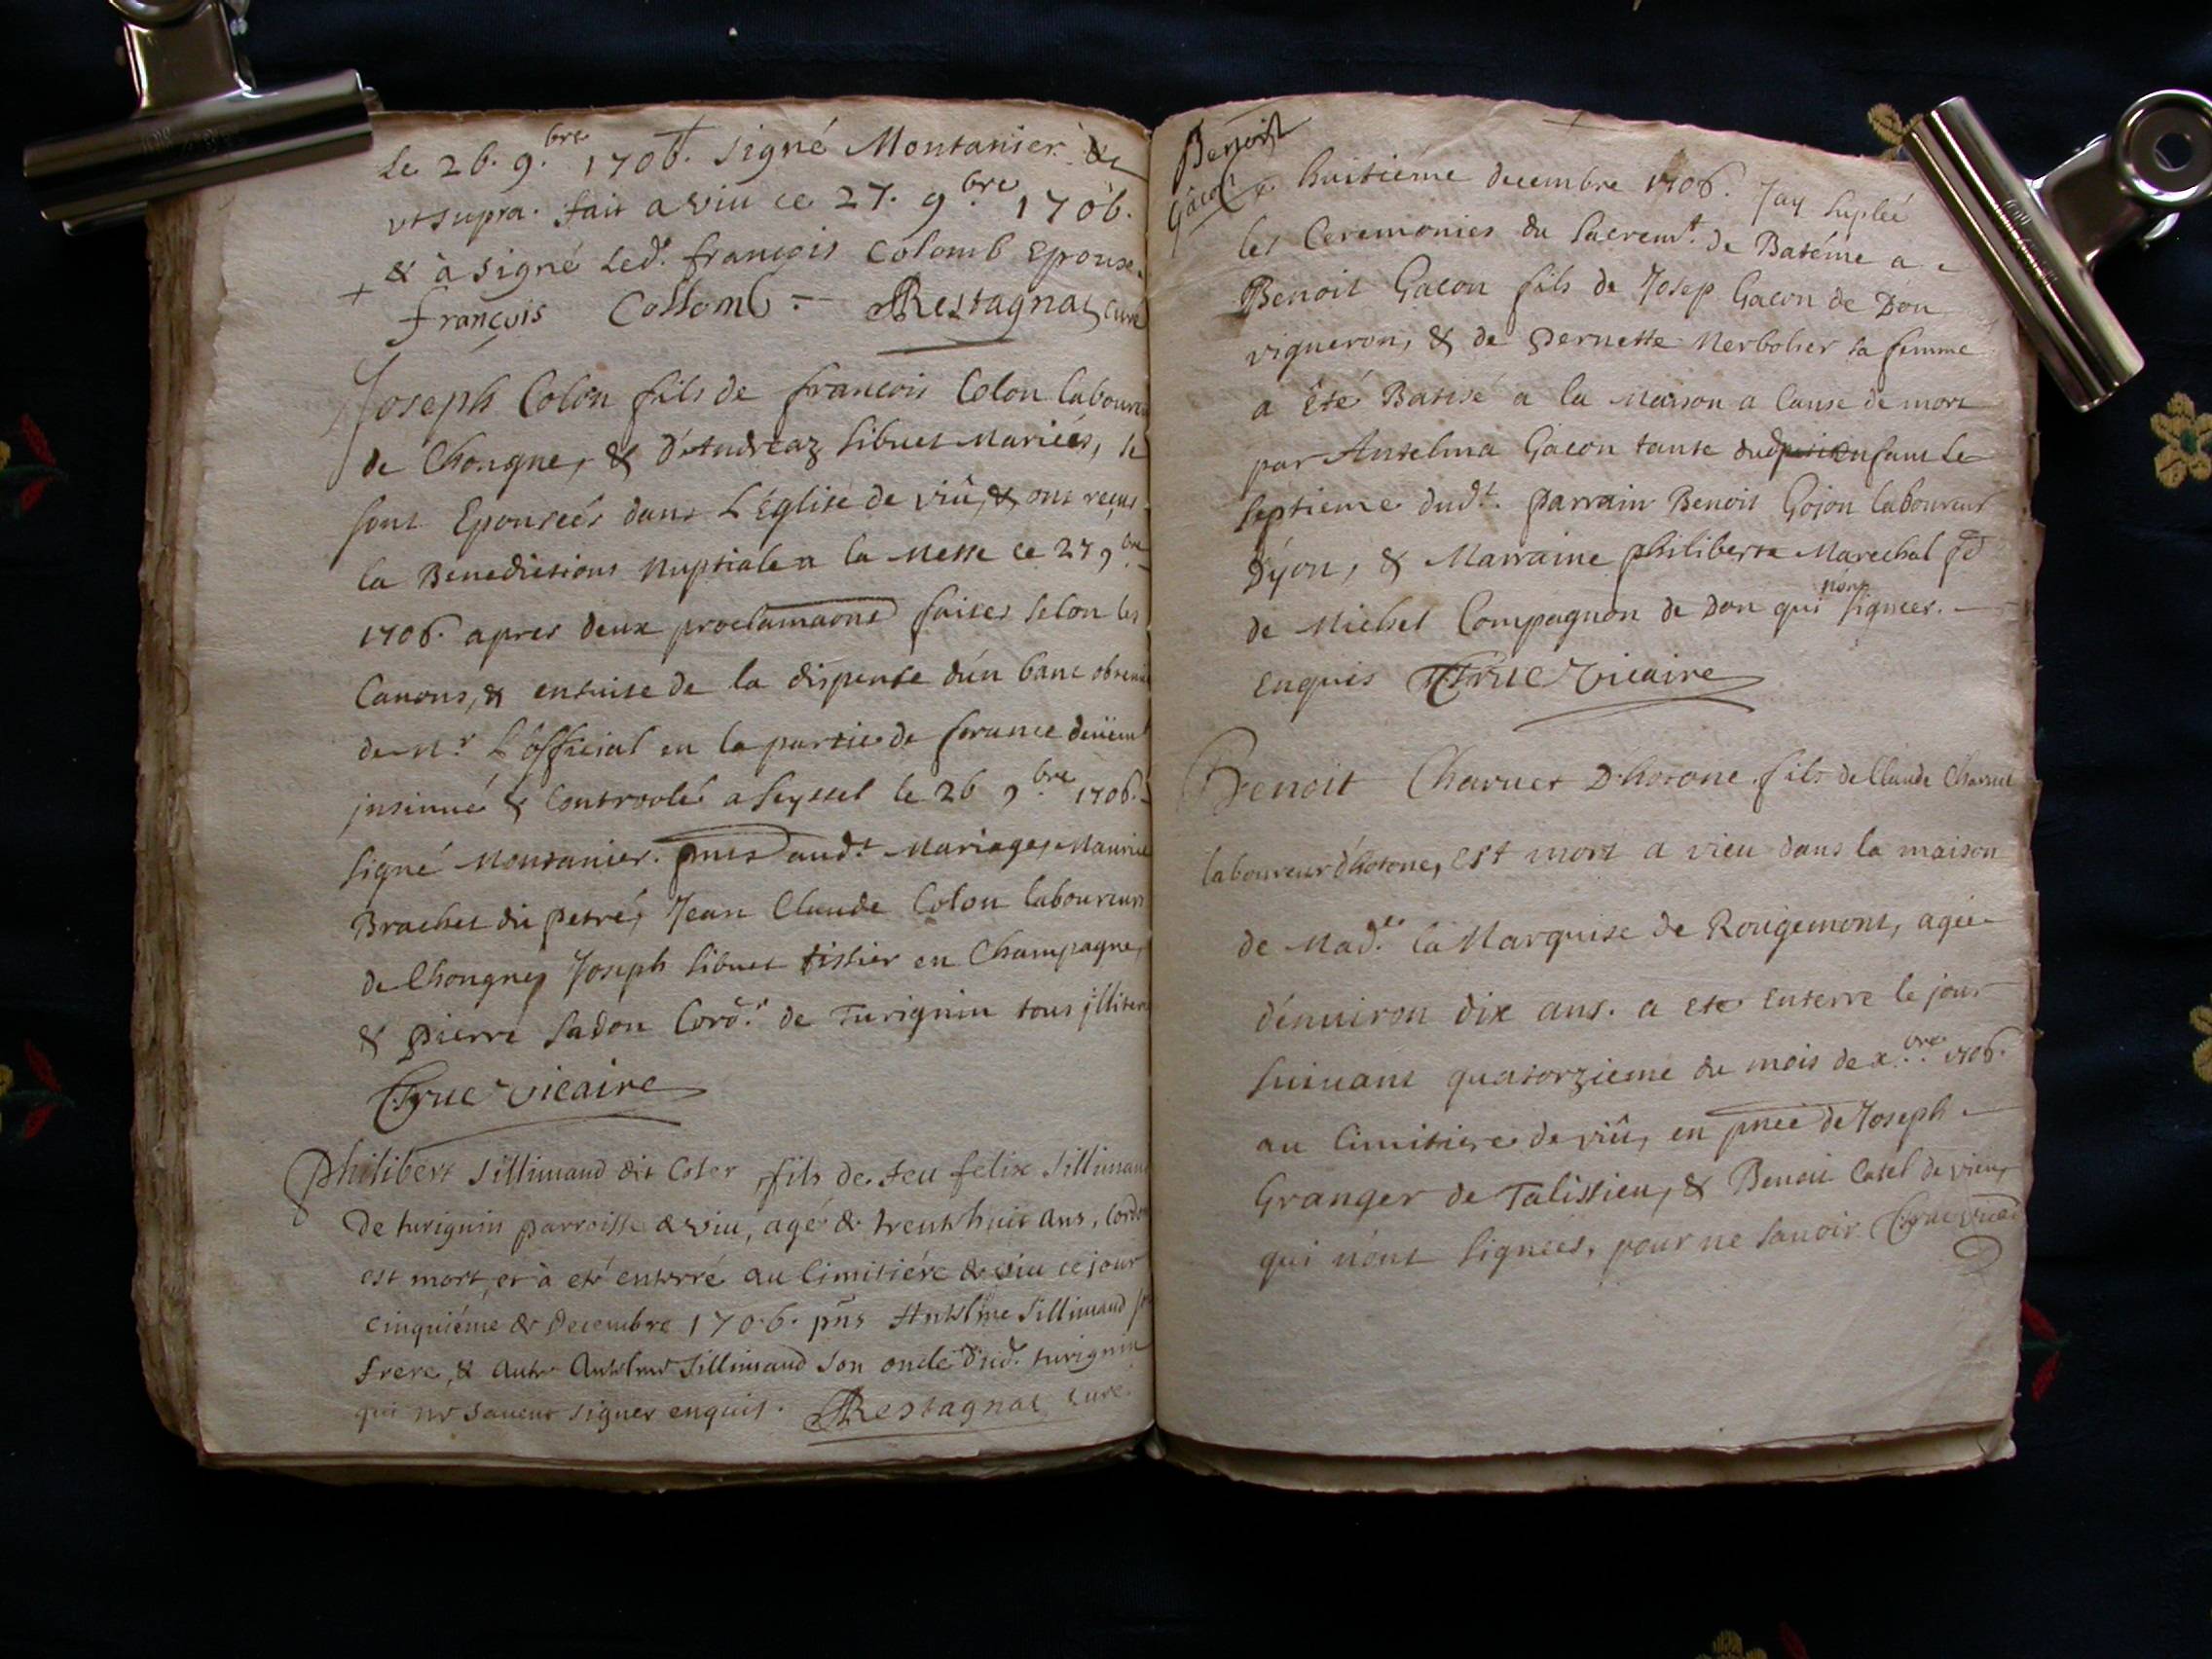 Le 26. 9.bre 1706. signé Montanier. &
ut supra. fait a viu ce 27. 9.bre 1706.
& à signé Led.t françois Colomb Epoux.
françois Collomb = Restagnat Curé
Joseph Colon fils de francois Colon laboureu
de Chongne, & d'Andréaz Sibuet Mariées, se
sont Epouseés dans L'Eglise de viû, & ont reçus
la Benedictions Nuptiale a la Messe ce 27 9bre
1706. apres deux proclamaons faites selon les
Canons, & ensuise de la dispense d'un banc obtenue
de mr. L'official en la partie de france deüem.t
jnsinué & Controolé a Seyssel le 26 9.bre 1706.
signé Montanier. pnts aud.t Mariage, Maurice
Brachet du petré, Jean Claude Colon laboureurs
de Chongne, Joseph Sibuet tissier en Champagne,
& pierre Sadon Cord.r de Turignin tous jlliteré
Truc Vicaire
Philibert Sillimand dit Coler fils de feu felix Sillimand
de turignin parroisse de viu, agé de trente huit ans, cordon
est mort, et à eté enterré au Cimitiére de viu ce jour
cinquiéme de Decembre 1706. pñs Anthelme Sillimand son
frere, & autre Anthelme Sillimand son oncle dud. turignin
qui ne savent signer enquis. Restagnat Curé.
Benoist
Gâcon
Le huitiéme decembre 1706. J'ay supleé
les Ceremonies du Sacrem.t de Batéme a
Benoit Gacon fils de Josep Gacon de Don
vigneron, & de Pernette Nerbolier sa femme
a Eté Batisé a la Maison a Cause de mort
par Anselma Gacon tante dud enfant Le
septieme dud.t parrain Benoit Gojon laboureur
D'yon, & Marraine philiberte Marechal fe
de Michel Compagnon de Don qui n'ont signeés.
Enquis Truc Vicaire
Benoit Charvet D'hotone fils de Claude Charvet
laboureur d'hotone, est mort a vieu dans la maison
de Mad.e la Marquise de Rougemont, ageé
d'enuiron dix ans. a eté Enterre le jour
suiuant quatorzieme du mois de x.bre 1706.
au Cimitiere de viû, en pnce de Joseph
Granger de Talissieu, & Benoit Catel de vieu,
qui n'ont signeés, pour ne sauoir Truc vicaire